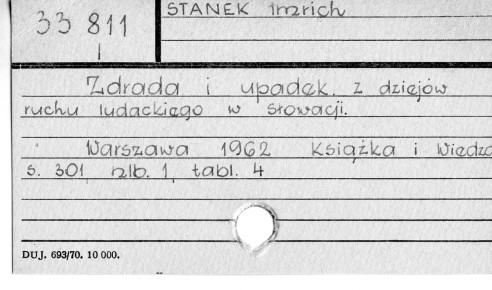 33 811
STANEK Imrich
Zdrada i upadek. z dziejów
ruchu ludackiego w Słowacji.
Warszawa 1962 Książka i Wiedza
s. 301, nlb. 1, tabl. 4
DUJ. 693/70. 10 000.